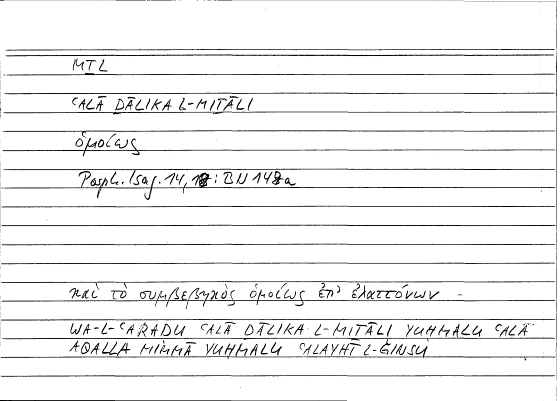 MṮL
ʿALĀ ḎĀLIKA L-MIṮĀLI
ὁμοίως
Porph. Isag. 14, 18: BN 148a
καὶ τὸ συμβεβηκὸς ὁμοίως ἐπ' ἐλαττόνων –
WA-L-ʿARAḌU ʿALĀ ḎĀLIKA L-MIṮĀLI YUḤMALU ʿALĀ
AQALLA MIMMĀ YUḤMALU ʿALAYHĪ L-ǦINSU